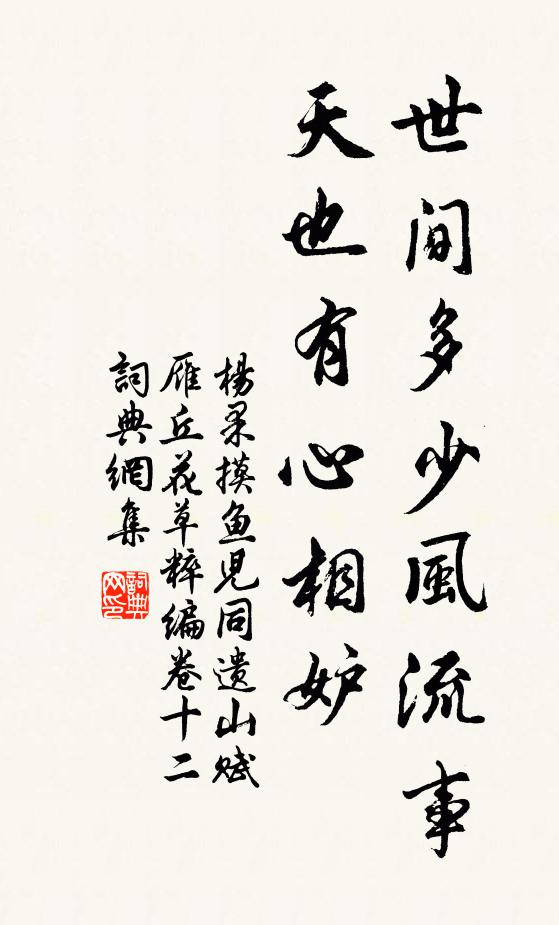 世間多少風流事
天也有心相妒
楊果摸魚兒同遺山賦
雁丘花草粹編卷十二
詞典網集
詞典
网印